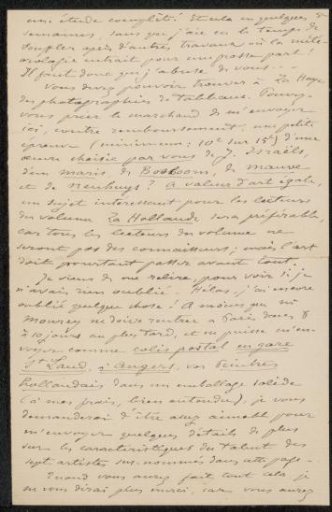 une étude complète! Et cela en quelques
semaines, sans que j'aie eu le temps de
souffler après d'autres travaux où la
entrait pour une grosse part!
Il faut donc que j'abuse de vous.
Vous devez pouvoir trouver à La Haye
des photographies de tableaux. Pouvez-
vous prier le marchand de m'envoyer
ici, contre remboursement, une petite
épreuve (minimum: 10c sur 15c) d'une
œuvre choisie par vous de J. Israëls,
d'un Maris, de Bosboom, de Mauve
et de Neuhuys? A valeur d'art égale,
un sujet intéressant pour les lecteurs
du volume La Hollande sera préférable,
car tous les lecteurs du volume ne
seront pas des connaisseurs; mais l'art
doit pourtant passer avant tout.
Je viens de me relire, pour voir si je
n'avais rien oublié. Hélas, j'ai encore
oublié quelque chose! A moins que
ne doive rentrer à Paris dans 8
à 10 jours au plus tard, et ne puisse m'en-
voyer comme colis postal en gare
St Laud, à Angers, vos Peintres
hollandais dans un emballage solide
(à mes frais, bien entendu), je vous
demanderai d'être assez aimable pour
m'envoyer quelques détails de plus
sur les caractéristiques du talent des
sept artistes sus-nommés dans cette page.
Quand vous aurez fait tout cela je
ne vous dirai plus merci, car vous aurez